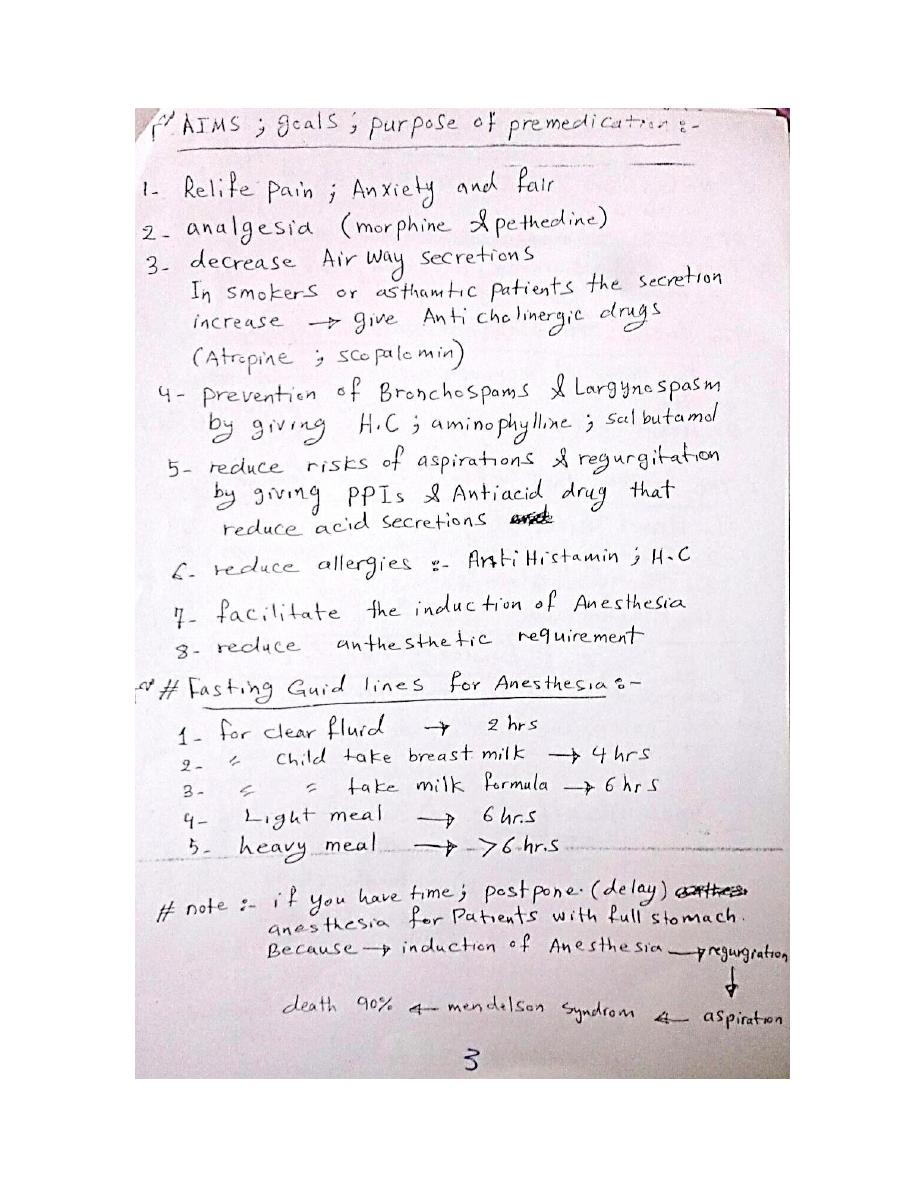 AIMS ; goals ; purpose of premedication :-
1- Relife pain ; Anxiety and fair
2- analgesia (morphine & pethedine)
3- decrease Air Way secretions
In smokers or asthamtic patients the secretion
increase → give Anti cholinergic drugs
(Atropine ; scopalomin)
4- prevention of Bronchospams & Largynospasm
by giving H.C ; aminophylline ; salbutamol
5- reduce risks of aspirations & regurgitation
by giving PPIs & Antiacid drug that
reduce acid secretions
6- reduce allergies :- Anti Histamin ; H.C
7- facilitate the induction of Anesthesia
8- reduce anthesthetic requirement
# Fasting Guid lines for Anesthesia :-
1- for clear fluid → 2 hrs
2- " child take breast milk → 4 hrs
3- " " take milk formula → 6 hrs
4- Light meal → 6 hr.s
5- heavy meal → >6 hr.s
# note :- if you have time ; postpone (delay)
anesthesia for Patients with full stomach.
Because → induction of Anesthesia → regurgration
↓
death 90% ← mendelson syndrom ← aspiration
3